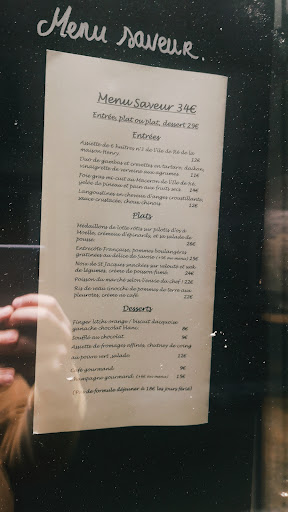 Menu saveur.
Menu Saveur 34€
Entrée, plat ou plat, dessert 29€
Entrées
Assiette de 6 huitres n°1 de l'Ile de Ré de la
maison Henry. 12€
Duo de gambas et crevettes en tartare, daikon,
vinaigrette de verveine aux agrumes. 12€
Foie gras mi-cuit au Macaron de l'Ile de Ré,
gelée de pineau et pain aux fruits secs 14€
Langoustines en cheveux d'anges croustillants,
sauce crustacée, choux chinois 12€
Plats
Médaillons de lotte rôtis sur pilotis d'os à
moelle, crémeux d'épinards, et sa salade de
pousse. 26€
Entrecôte Française, pommes boulangères
gratinées au délice de Savoie
Noix de St Jacques snackées sur velouté et wok
de légumes, crème de poisson fumé. 24€
Poisson du marché selon l'envie du chef
Ris de veau crunchy de pommes de terre aux
pleurotes, crème au café.
Desserts
Finger letchi orange / biscuit
ganache chocolat blanc 9€
Soufflé au chocolat. 9€
Assiette de fromages affinés, chutney de coing
au poivre vert, salade. 13€
Café gourmand. 9€
Champagne gourmand 15€
(Pas de formule déjeuner à 18€ les jours fériés)